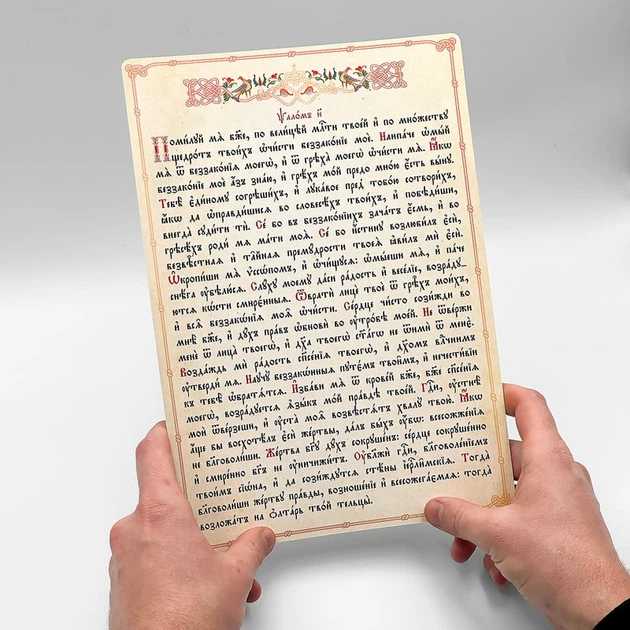 Ѱало́мъ н҃
Поми́луй мѧ̀ бж҃е, по вели́цѣй млⷭ҇ти твое́й и҆ по мно́жеству
щедро́тъ твои́хъ ѡ҆чи́сти беззако́нїе моѐ. Наипа́че ѡ҆мы́й
мѧ̀ ѿ беззако́нїѧ моегѡ̀, и҆ ѿ грѣха̀ моегѡ̀ ѡ҆чи́сти мѧ̀. Ꙗ҆́кѡ
беззако́нїе моѐ а҆́зъ зна́ю, и҆ грѣ́хъ мо́й предо мно́ю є҆́сть вы́ну.
Тебѣ̀ є҆ди́ному согрѣши́хъ, и҆ лꙋка́вое пред̾ тобо́ю сотвори́хъ,
ꙗ҆́кѡ да ѡ҆правди́шисѧ во словесѣ́хъ твои́хъ, и҆ побѣди́ши,
внегда̀ сꙋди́ти тѝ. Се́ бо въ беззако́нїихъ зача́тъ є҆́смь, и҆ во
грѣсѣ́хъ родѝ мѧ̀ ма́ти моѧ̀. Се́ бо и҆́стинꙋ возлюби́лъ є҆сѝ,
безвѣ́стнаѧ и҆ та̑йнаѧ премꙋ́дрости твоеѧ̀ ꙗ҆ви́лъ мѝ є҆сѝ.
Ѡ҆кропи́ши мѧ̀ ѵ҆ссѡ́помъ, и҆ ѡ҆чи́щꙋсѧ: ѡ҆мы́еши мѧ̀, и҆ па́че
снѣ́га ᲂу҆бѣлю́сѧ. Слꙋ́хꙋ моемꙋ̀ да́си ра́дость и҆ весе́лїе, возра́дꙋ-
ютсѧ кѡ́сти смирє́нныѧ. Ѿвратѝ лицѐ твоѐ ѿ грѣ̑хъ мои́хъ,
и҆ всѧ̑ беззакѡ́нїѧ моѧ̑ ѡ҆чи́сти. Се́рдце чи́сто сози́жди во
мнѣ̀ бж҃е, и҆ дꙋ́хъ пра́въ ѡ҆бновѝ во ᲂу҆тро́бѣ мое́й. Не ѿве́ржи
менѐ ѿ лица̀ твоегѡ̀, и҆ дх҃а твоегѡ̀ ст҃а́гѡ не ѿимѝ ѿ менє̀.
Возда́ждь мѝ ра́дость сп҃се́нїѧ твоегѡ̀, и҆ дх҃омъ влⷣчнимъ
ᲂу҆твердѝ мѧ̀. Наꙋчꙋ̀ беззакѡ́нныѧ пꙋтє́мъ твои̑мъ, и҆ нечести́вїи
къ тебѣ̀ ѡ҆братѧ́тсѧ. И҆зба́ви мѧ̀ ѿ крове́й бж҃е, бж҃е сп҃се́нїѧ
моегѡ̀, возра́дꙋетсѧ ѧ҆зы́къ мо́й пра́вдѣ твое́й. Гдⷭ҇и, ᲂу҆стнѣ̀
моѝ ѿве́рзеши, и҆ ᲂу҆ста̀ моѧ̑ возвѣстѧ́тъ хвалꙋ̀ твою̀. Ꙗ҆́кѡ
а҆́ще бы восхотѣ́лъ є҆сѝ же́ртвы, да́лъ бы́хъ ᲂу҆́бѡ: всесожжє́нїѧ
не бл҃говоли́ши. Же́ртва бг҃ꙋ дꙋ́хъ сокрꙋше́нъ: се́рдце сокрꙋше́нно
и҆ смире́нно бг҃ъ не ᲂу҆ничижи́тъ. Оу҆бл҃жѝ гдⷭ҇и, бл҃говоле́нїемъ
твои́мъ сїѡ́на, и҆ да сози́ждꙋтсѧ стѣ̑ны і҆ерⷭ҇ли̑мскїѧ. Тогда̀
бл҃говоли́ши же́ртвꙋ пра́вды, возноше́нїе и҆ всесожега́емаѧ: тогда̀
возложа́тъ на ѻ҆лта́рь тво́й тельцы̀.